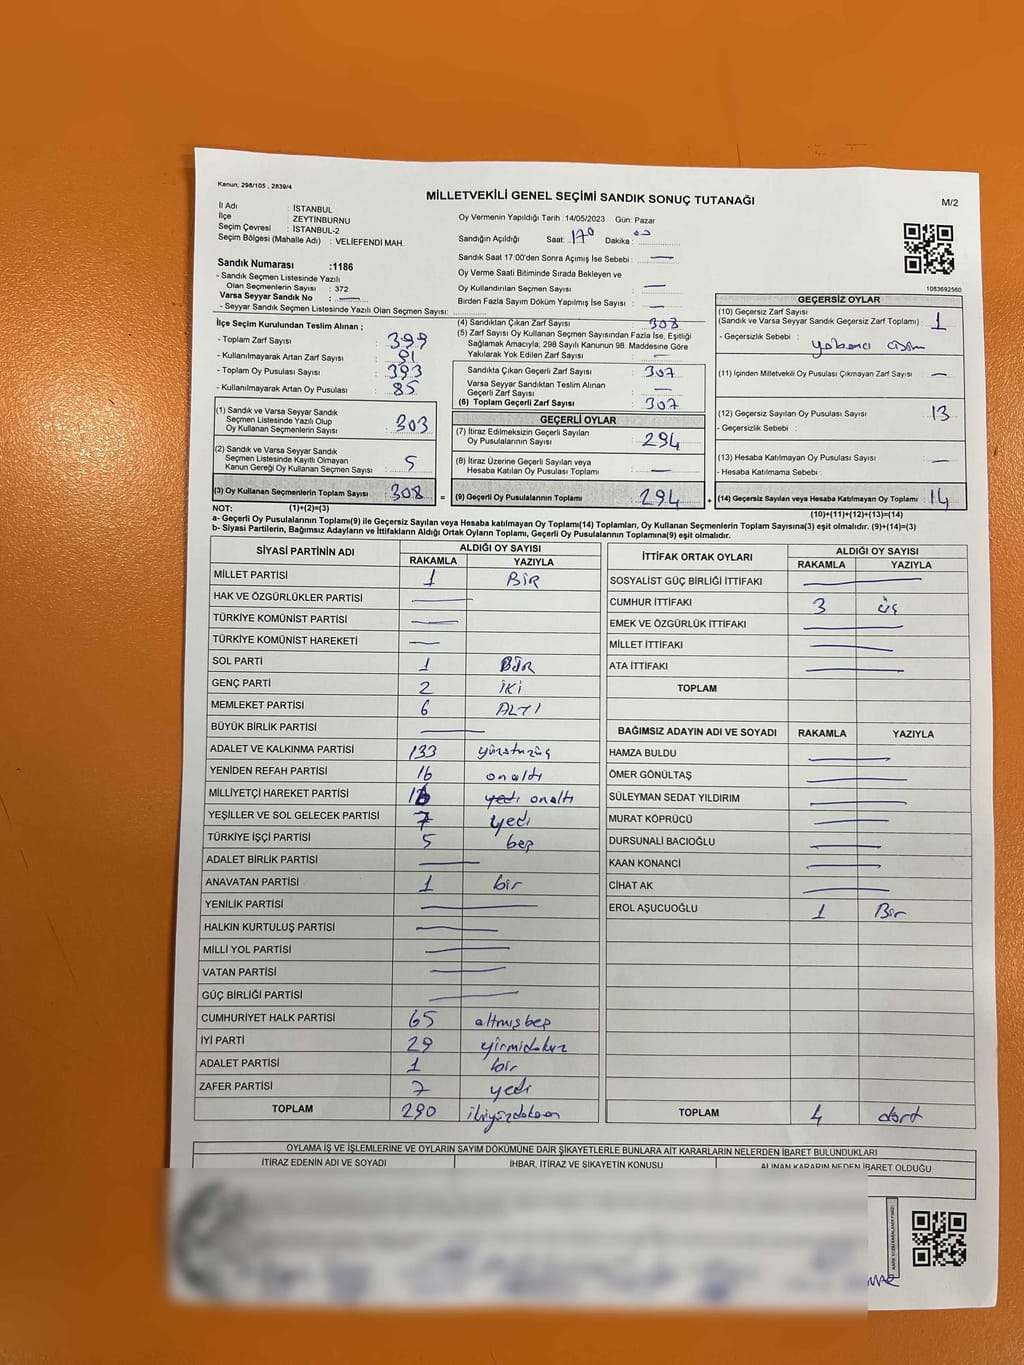 Kanun; 298/105 , 2839/4
MİLLETVEKİLİ GENEL SEÇİMİ SANDIK SONUÇ TUTANAĞI
M/2
İl Adı : İSTANBUL
İlçe : ZEYTİNBURNU
Seçim Çevresi : İSTANBUL-2
Seçim Bölgesi (Mahalle Adı) : VELİEFENDİ MAH.
Oy Vermenin Yapıldığı Tarih : 14/05/2023 Gün: Pazar
Sandığın Açıldığı Saat: 17⁰ Dakika: 00
Sandık Saat 17:00'den Sonra Açımış İse Sebebi : —
Oy Verme Saati Bitiminde Sırada Bekleyen ve
Oy Kullandırılan Seçmen Sayısı : —
Birden Fazla Sayım Döküm Yapılmış İse Sayısı : —
Sandık Numarası :1186
- Sandık Seçmen Listesinde Yazılı
Olan Seçmenlerin Sayısı : 372
Varsa Seyyar Sandık No : —
- Seyyar Sandık Seçmen Listesinde Yazılı Olan Seçmen Sayısı:
1083692560
İlçe Seçim Kurulundan Teslim Alınan ;
- Toplam Zarf Sayısı : 399
- Kullanılmayarak Artan Zarf Sayısı : 91
- Toplam Oy Pusulası Sayısı : 393
- Kullanılmayarak Artan Oy Pusulası : 85
(1) Sandık ve Varsa Seyyar Sandık
Seçmen Listesinde Yazılı Olup
Oy Kullanan Seçmenlerin Sayısı : 303
(2) Sandık ve Varsa Seyyar Sandık
Seçmen Listesinde Kayıtlı Olmayan
Kanun Gereği Oy Kullanan Seçmen Sayısı : 5
(3) Oy Kullanan Seçmenlerin Toplam Sayısı : 308 =
(4) Sandıktan Çıkan Zarf Sayısı : 308
(5) Zarf Sayısı Oy Kullanan Seçmen Sayısından Fazla İse, Eşitliği
Sağlamak Amacıyla; 298 Sayılı Kanunun 98. Maddesine Göre
Yakılarak Yok Edilen Zarf Sayısı : —
Sandıkta Çıkan Geçerli Zarf Sayısı : 307
Varsa Seyyar Sandıktan Teslim Alınan
Geçerli Zarf Sayısı : —
(6) Toplam Geçerli Zarf Sayısı : 307
GEÇERLİ OYLAR
(7) İtiraz Edilmeksizin Geçerli Sayılan
Oy Pusulalarının Sayısı : 294
(8) İtiraz Üzerine Geçerli Sayılan veya
Hesaba Katılan Oy Pusulası Toplamı : —
(9) Geçerli Oy Pusulalarının Toplamı : 294 +
GEÇERSİZ OYLAR
(10) Geçersiz Zarf Sayısı
(Sandık ve Varsa Seyyar Sandık Geçersiz Zarf Toplamı) : 1
- Geçersizlik Sebebi : yabancı cisim
(11) İçinden Milletvekili Oy Pusulası Çıkmayan Zarf Sayısı : —
(12) Geçersiz Sayılan Oy Pusulası Sayısı : 13
- Geçersizlik Sebebi :
(13) Hesaba Katılmayan Oy Pusulası Sayısı : —
- Hesaba Katılmama Sebebi :
(14) Geçersiz Sayılan veya Hesaba Katılmayan Oy Toplamı : 14
NOT: (1)+(2)=(3)
(10)+(11)+(12)+(13)=(14)
a- Geçerli Oy Pusulalarının Toplamı(9) ile Geçersiz Sayılan veya Hesaba katılmayan Oy Toplamı(14) Toplamları, Oy Kullanan Seçmenlerin Toplam Sayısına(3) eşit olmalıdır. (9)+(14)=(3)
b- Siyasi Partilerin, Bağımsız Adayların ve İttifakların Aldığı Ortak Oyların Toplamı, Geçerli Oy Pusulalarının Toplamına(9) eşit olmalıdır.
SİYASİ PARTİNİN ADI ALDIĞI OY SAYISI
RAKAMLA YAZIYLA
MİLLET PARTİSİ 1 BİR
HAK VE ÖZGÜRLÜKLER PARTİSİ —
TÜRKİYE KOMÜNİST PARTİSİ —
TÜRKİYE KOMÜNİST HAREKETİ —
SOL PARTİ 1 BİR
GENÇ PARTİ 2 İKİ
MEMLEKET PARTİSİ 6 ALTI
BÜYÜK BİRLİK PARTİSİ —
ADALET VE KALKINMA PARTİSİ 133 yüzotuzüç
YENİDEN REFAH PARTİSİ 16 onaltı
MİLLİYETÇİ HAREKET PARTİSİ 16 yedi onaltı
YEŞİLLER VE SOL GELECEK PARTİSİ 7 yedi
TÜRKİYE İŞÇİ PARTİSİ 5 beş
ADALET BİRLİK PARTİSİ —
ANAVATAN PARTİSİ 1 bir
YENİLİK PARTİSİ —
HALKIN KURTULUŞ PARTİSİ —
MİLLİ YOL PARTİSİ —
VATAN PARTİSİ —
GÜÇ BİRLİĞİ PARTİSİ —
CUMHURİYET HALK PARTİSİ 65 altmışbeş
İYİ PARTİ 29 yirmidokuz
ADALET PARTİSİ 1 bir
ZAFER PARTİSİ 7 yedi
TOPLAM 290 ikiyüzdoksan
İTTİFAK ORTAK OYLARI ALDIĞI OY SAYISI
RAKAMLA YAZIYLA
SOSYALİST GÜÇ BİRLİĞİ İTTİFAKI —
CUMHUR İTTİFAKI 3 üç
EMEK VE ÖZGÜRLÜK İTTİFAKI —
MİLLET İTTİFAKI —
ATA İTTİFAKI —
TOPLAM
BAĞIMSIZ ADAYIN ADI VE SOYADI RAKAMLA YAZIYLA
HAMZA BULDU —
ÖMER GÖNÜLTAŞ —
SÜLEYMAN SEDAT YILDIRIM —
MURAT KÖPRÜCÜ —
DURSUNALİ BACIOĞLU —
KAAN KONANCİ —
CİHAT AK —
EROL AŞUCUOĞLU 1 Bir
TOPLAM 4 dört
OYLAMA İŞ VE İŞLEMLERİNE VE OYLARIN SAYIM DÖKÜMÜNE DAİR ŞİKAYETLERLE BUNLARA AİT KARARLARIN NELERDEN İBARET BULUNDUKLARI
İTİRAZ EDENİN ADI VE SOYADI İHBAR, İTİRAZ VE ŞİKAYETİN KONUSU ALINAN KARARIN NEDEN İBARET OLDUĞU